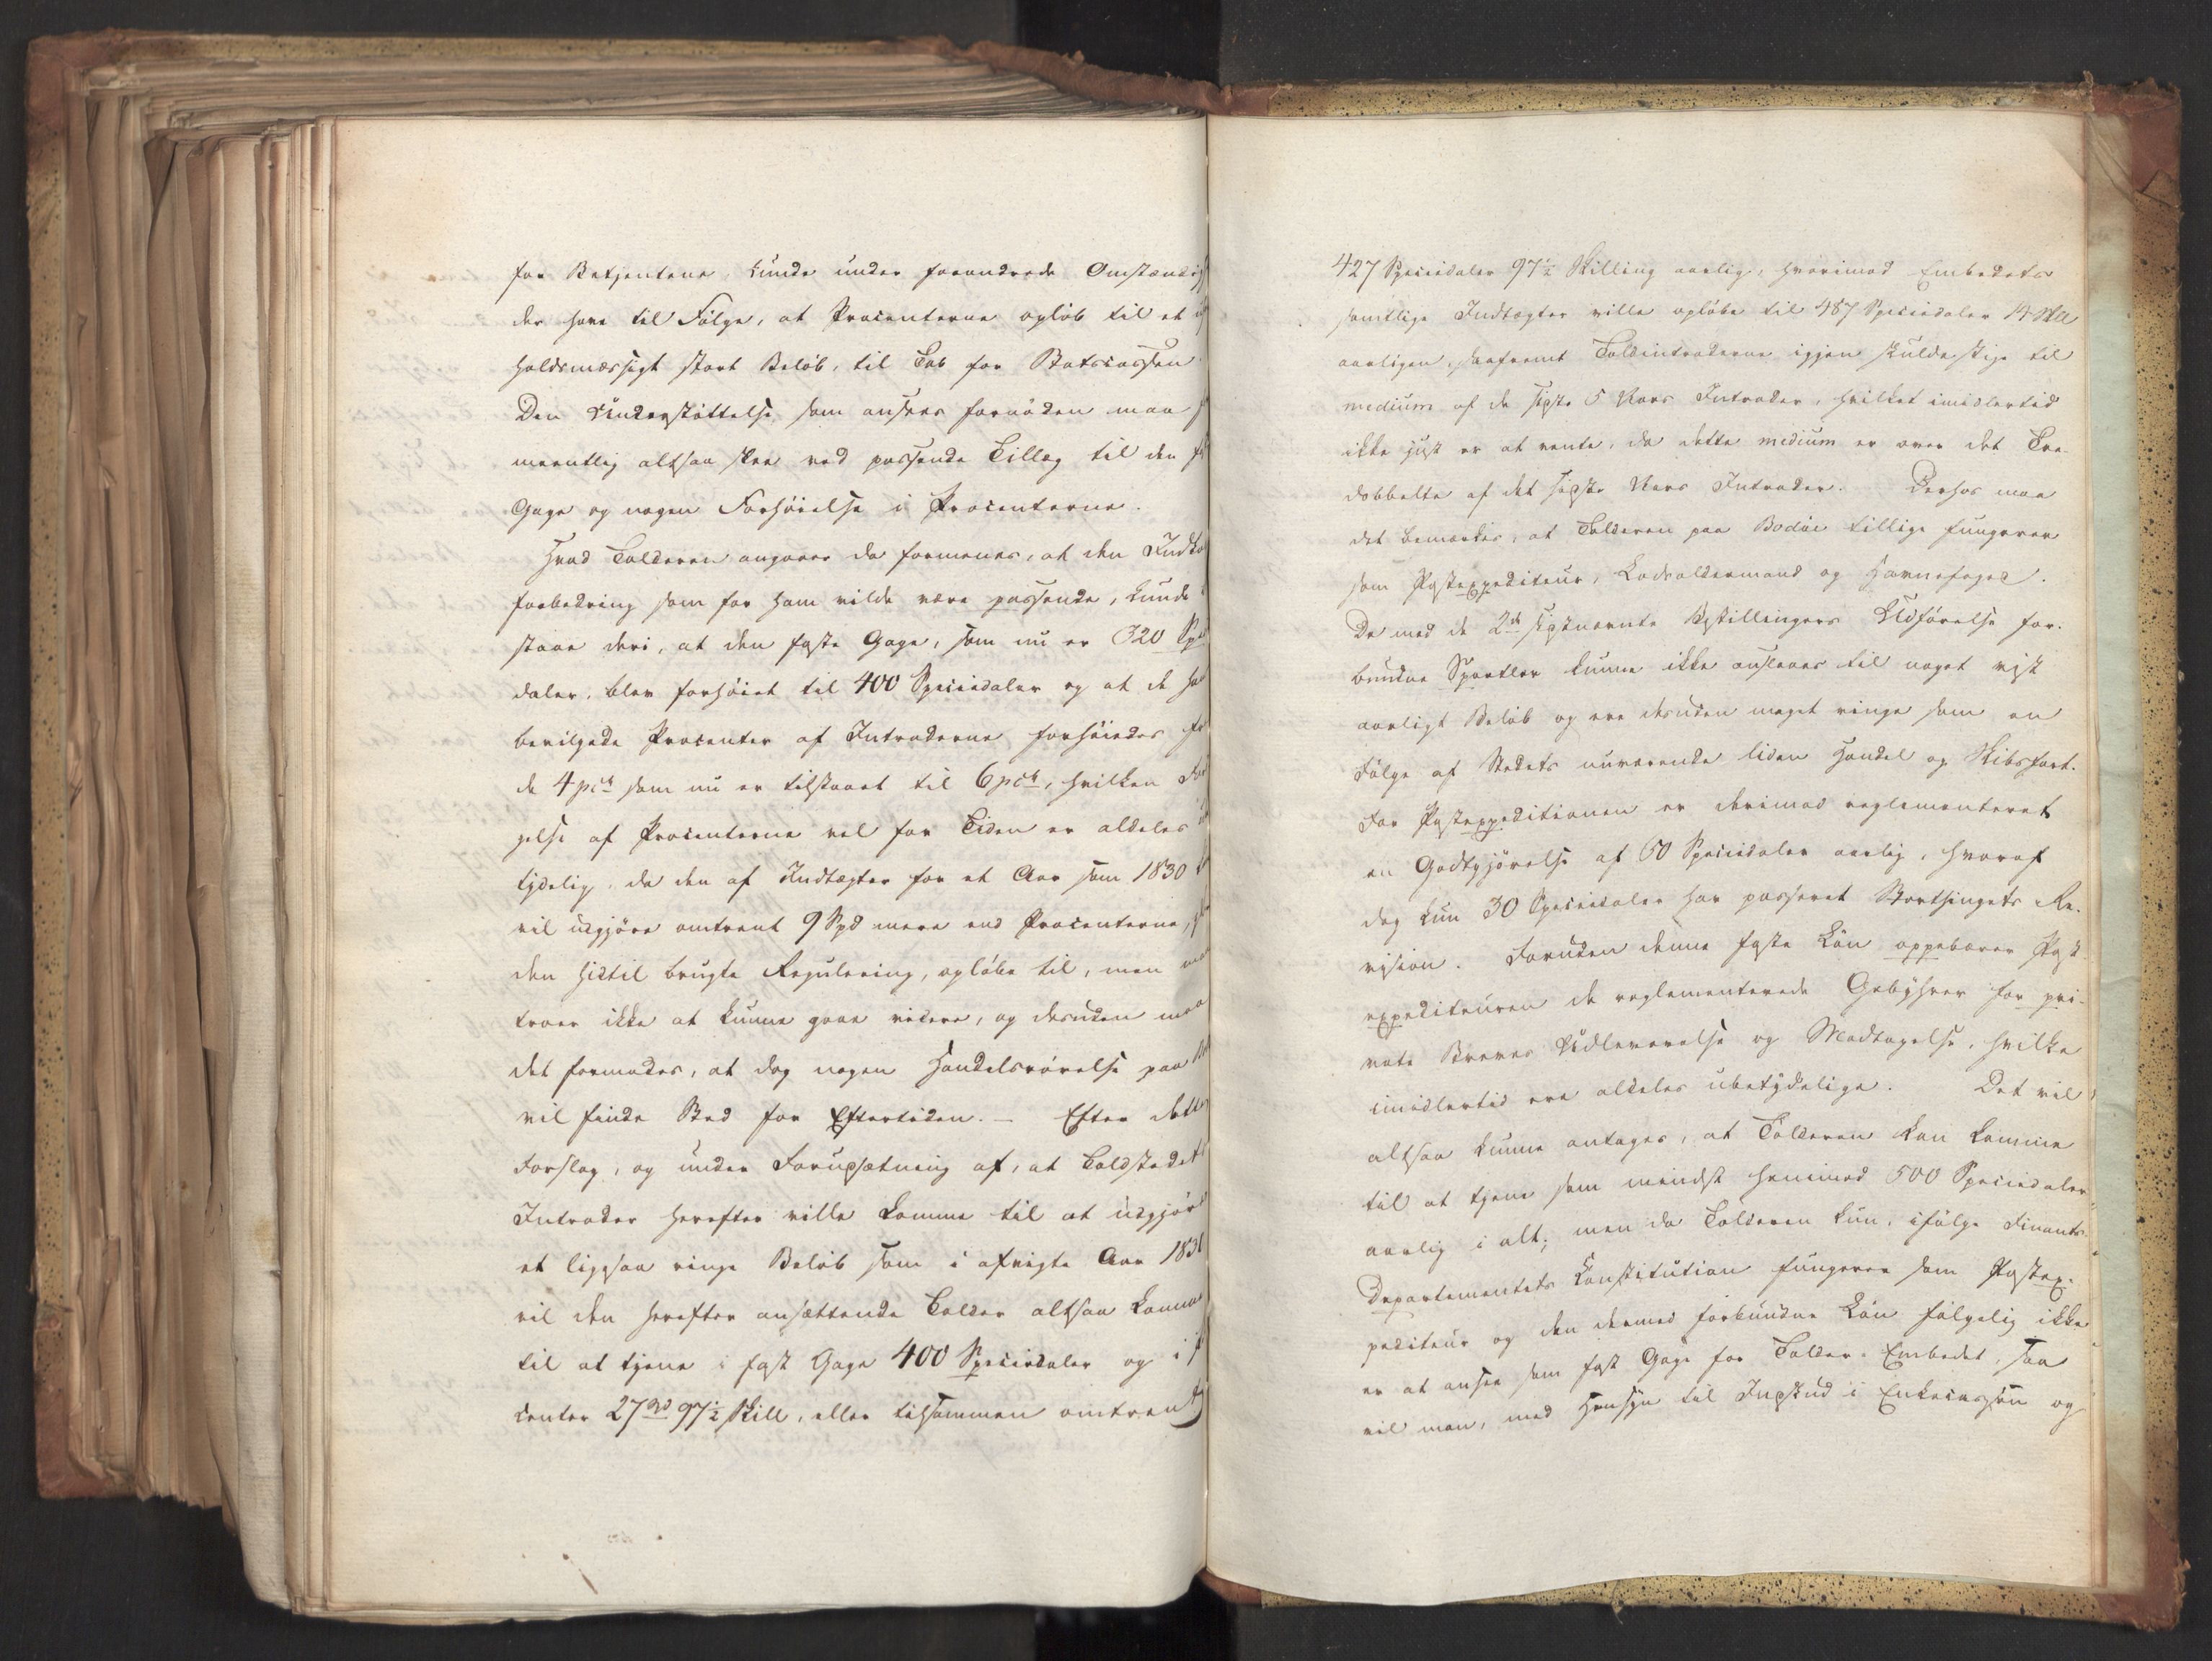 for Betjentene, kunde under forandrede Omstændig
der have til Følge, at Procenterne opløb til et
holdsmæssigt stort Beløb, til Tab for Statscassen.
Den Understøttelse, som ansees fornøden maa
meentlig altsaa skee ved passende Tillæg til den
Gage og nogen Forhøielse i Procenterne.
Hvad Tolderen angaaer da formenes, at den Indtæ
forbedring som for ham vilde være passende, kunde
staae deri, at den faste Gage, som nu er 320 Spe
daler, blev forhøiet til 400 Speciedaler og at de ha
bevilgede Procenter af Intraderne forhøiedes fr
de 4 pct som nu er tilstaaet til 6 pct, hvilken For
gelse af Procenterne vel for Tiden er aldeles
tydelig, da den af Indtægter for et Aar som 1830
vil udgjøre omtrent 9 Spd mere end Procenterne,
den hidtil brugte Regulering, opløbe til, men ma
troer ikke at kunne gaae videre, og desuden maa
det formodes, at dog nogen Handelsrørelse paa
vil finde Sted for Eftertiden. – Efter dette
Forslag, og under Forudsætning af, at Toldstedets
Intrader herefter ville komme til at udgjøre
et ligesaa ringe Beløb som i afvigte Aar 183
vil den herefter ansættende Tolder altsaa komme
til at tjene i fast Gage 400 Speciedaler og i
center 27 97½ Skill, eller tilsammen omtrent
427 Speciedaler 97½ Skilling aarlig, hvorimod Embedets
samtlige Indtægter ville opløbe til 487 Speciedaler 14 Skll
aarligen, saafremt Toldintraderne igjen skulde stige til
medium af de sidste 5 Aars Intrader, hvilket imidlertid
ikke just er at vente, da dette medium er over det Tre-
dobbelte af det sidste Aars Intrader. Derhos maa
det bemærkes, at Tolderen paa Bodøe tillige fungerer
som Postexpediteur, Lodsoldermand og Havnefoged.
De med de 2de sidstnævnte Bestillingers Udførelse for-
bundne Sportler kunne ikke ansættes til noget vist
aarligt Beløb og ere desuden meget ringe som en
Følge af Stedets nuværende liden Handel og Skibsfart.
For Postexpeditionen er derimod reglementeret
en Godtgjørelse af 60 Speciedaler aarlig, hvoraf
dog kun 30 Speciedaler har passeret Storthingets Re-
vision. Foruden denne faste Løn oppebærer Post-
expediteuren de reglementerede Gebyhrer for pri-
vate Breves Udleverelse og Modtagelse, hvilke
imidlertid ere aldeles ubetydelige. Det vil
altsaa kunne antages, at Tolderen kan komme
til at tjene som mindst henimod 500 Speciedaler
aarlig i alt; men da Tolderen kun, ifølge Finants-
Departementets Constitution fungerer som Postex-
pediteur og den dermed forbundne Løn følgelig ikke
er at ansee som fast Gage for Tolder-Embedet, saa
vil man, med Hensyn til Indskud i Enkecassen og